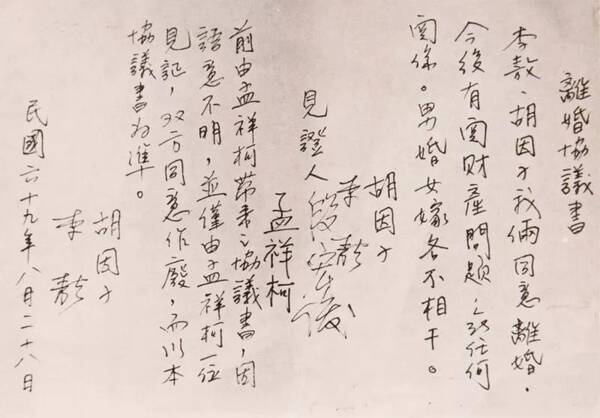 離婚協議書
李敖、胡因子我倆同意離婚。
今後有関財產問題、任何
関係。男婚女嫁各不相干。
胡因子
李敖
見證人段宏俊
孟祥柯
前由孟祥柯帶来之協議書，因
語意不明，並僅由孟祥柯一位
見証，双方同意作廢，而以本
協議書为準。
胡因子
李敖
民國六十九年八月二十八日